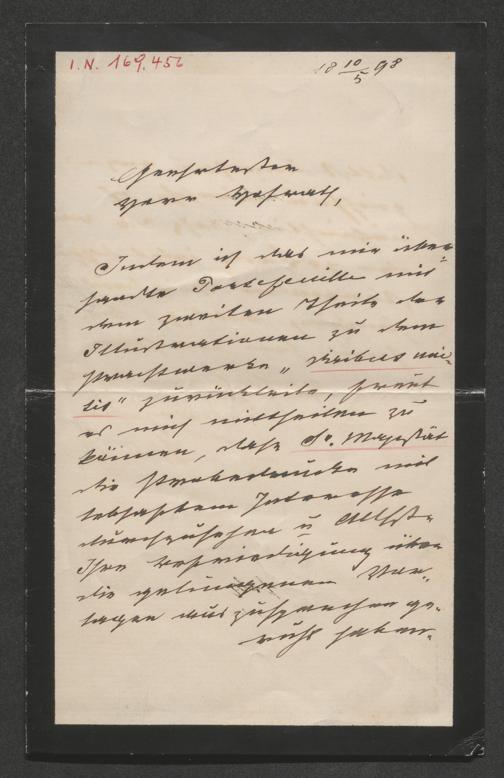 I.N. 169.456
18 10/5 98
Geehrtester
Herr Hofrath,
Indem ich das mir über-
sandte Portefeuille mit
dem zweiten Theile der
Illustrationen zu dem
Prachtwerke „ viribus uni-
tis" zurückleite, freut
es mich mittheilen zu
können, daß Se. Majestät
die Probedrucke mit
lebhaftem Interesse
durchzusehen u Allhst-
Ihre Befriedigung über
die gelungenen Vor-
lagen auszusprechen ge-
ruht haben.